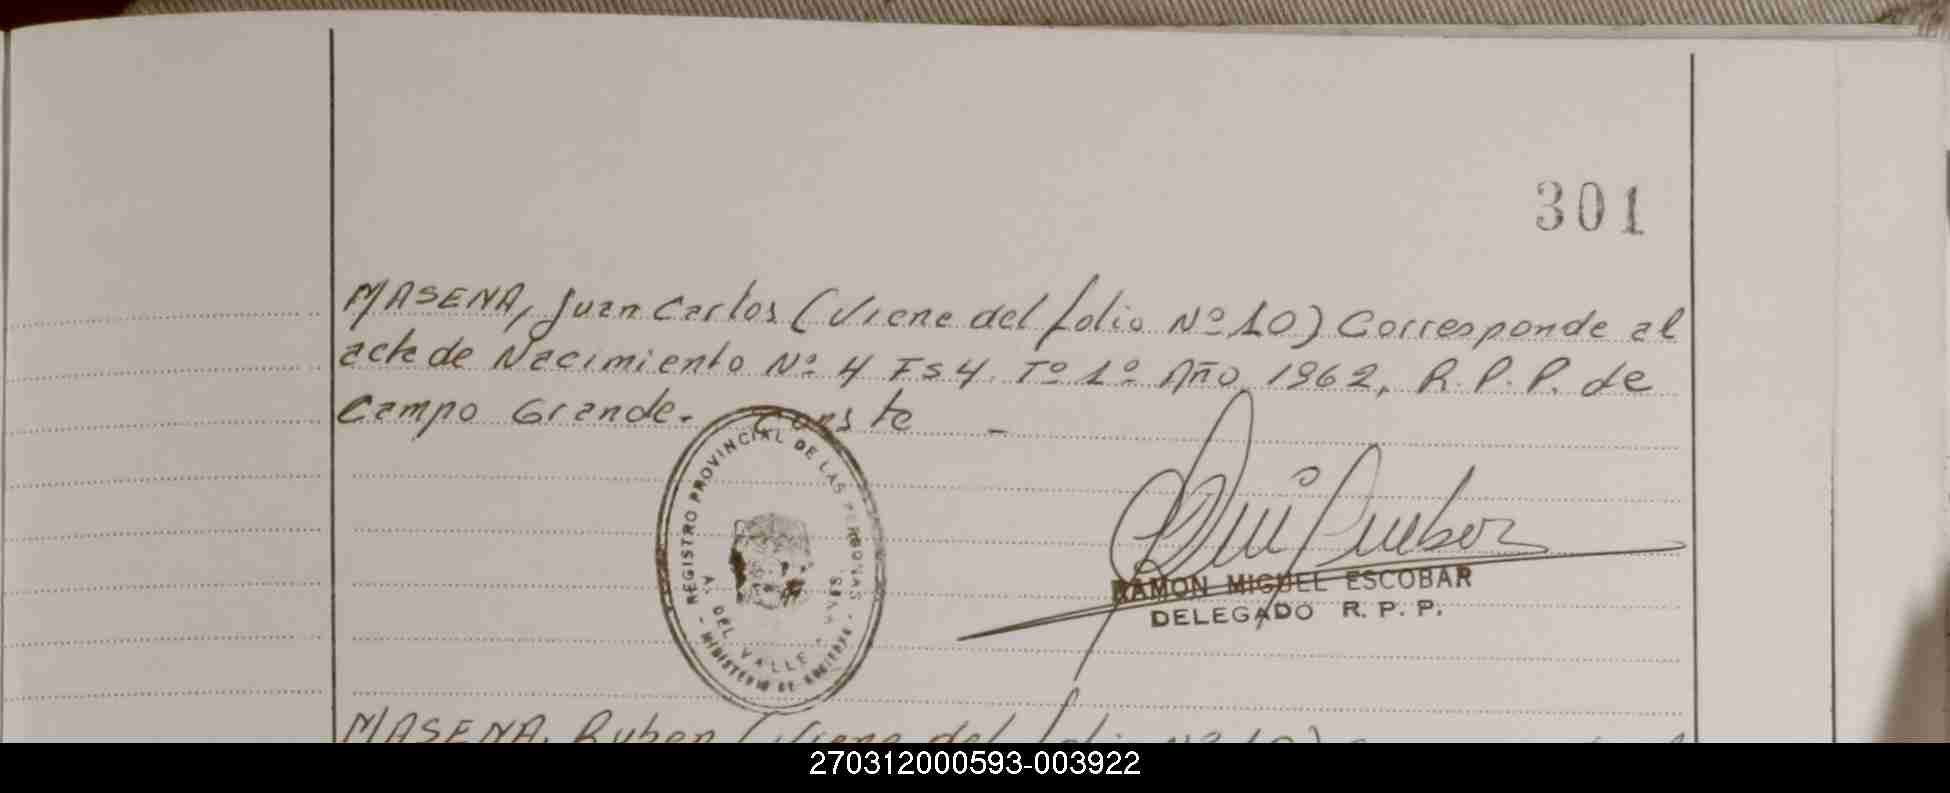 301
MASENA, Juan Carlos (Viene del folio Nº 10) Corresponde al
acta de Nacimiento Nº 4 Fs 4. Tº 1º Año 1962, R.P.P. de
Campo Grande. Conste _
REGISTRO PROVINCIAL DE LAS PERSONAS
Aº DEL VALLE
MINISTERIO DE
RAMON MIGUEL ESCOBAR
DELEGADO R. P. P.
MASENA, Ruben (Viene del folio Nº 10)
270312000593-003922